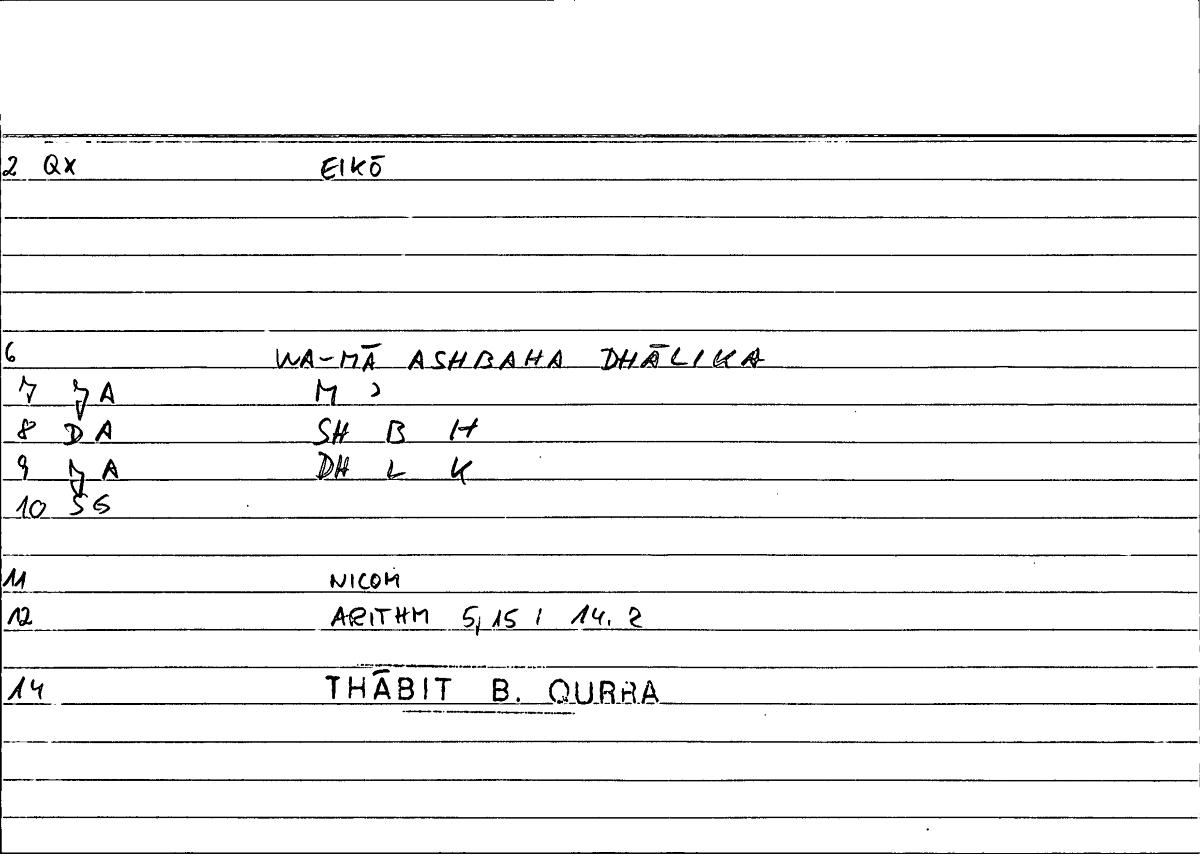 2 QX EIKŌ
6 WA-MĀ ASHBAHA DHĀLIKA
7 A M ɔ
8 DA SH B H
9 A DH L K
10 SG
11 NICOM
12 ARITHM 5,15 / 14.2
14 THĀBIT B. QURRA